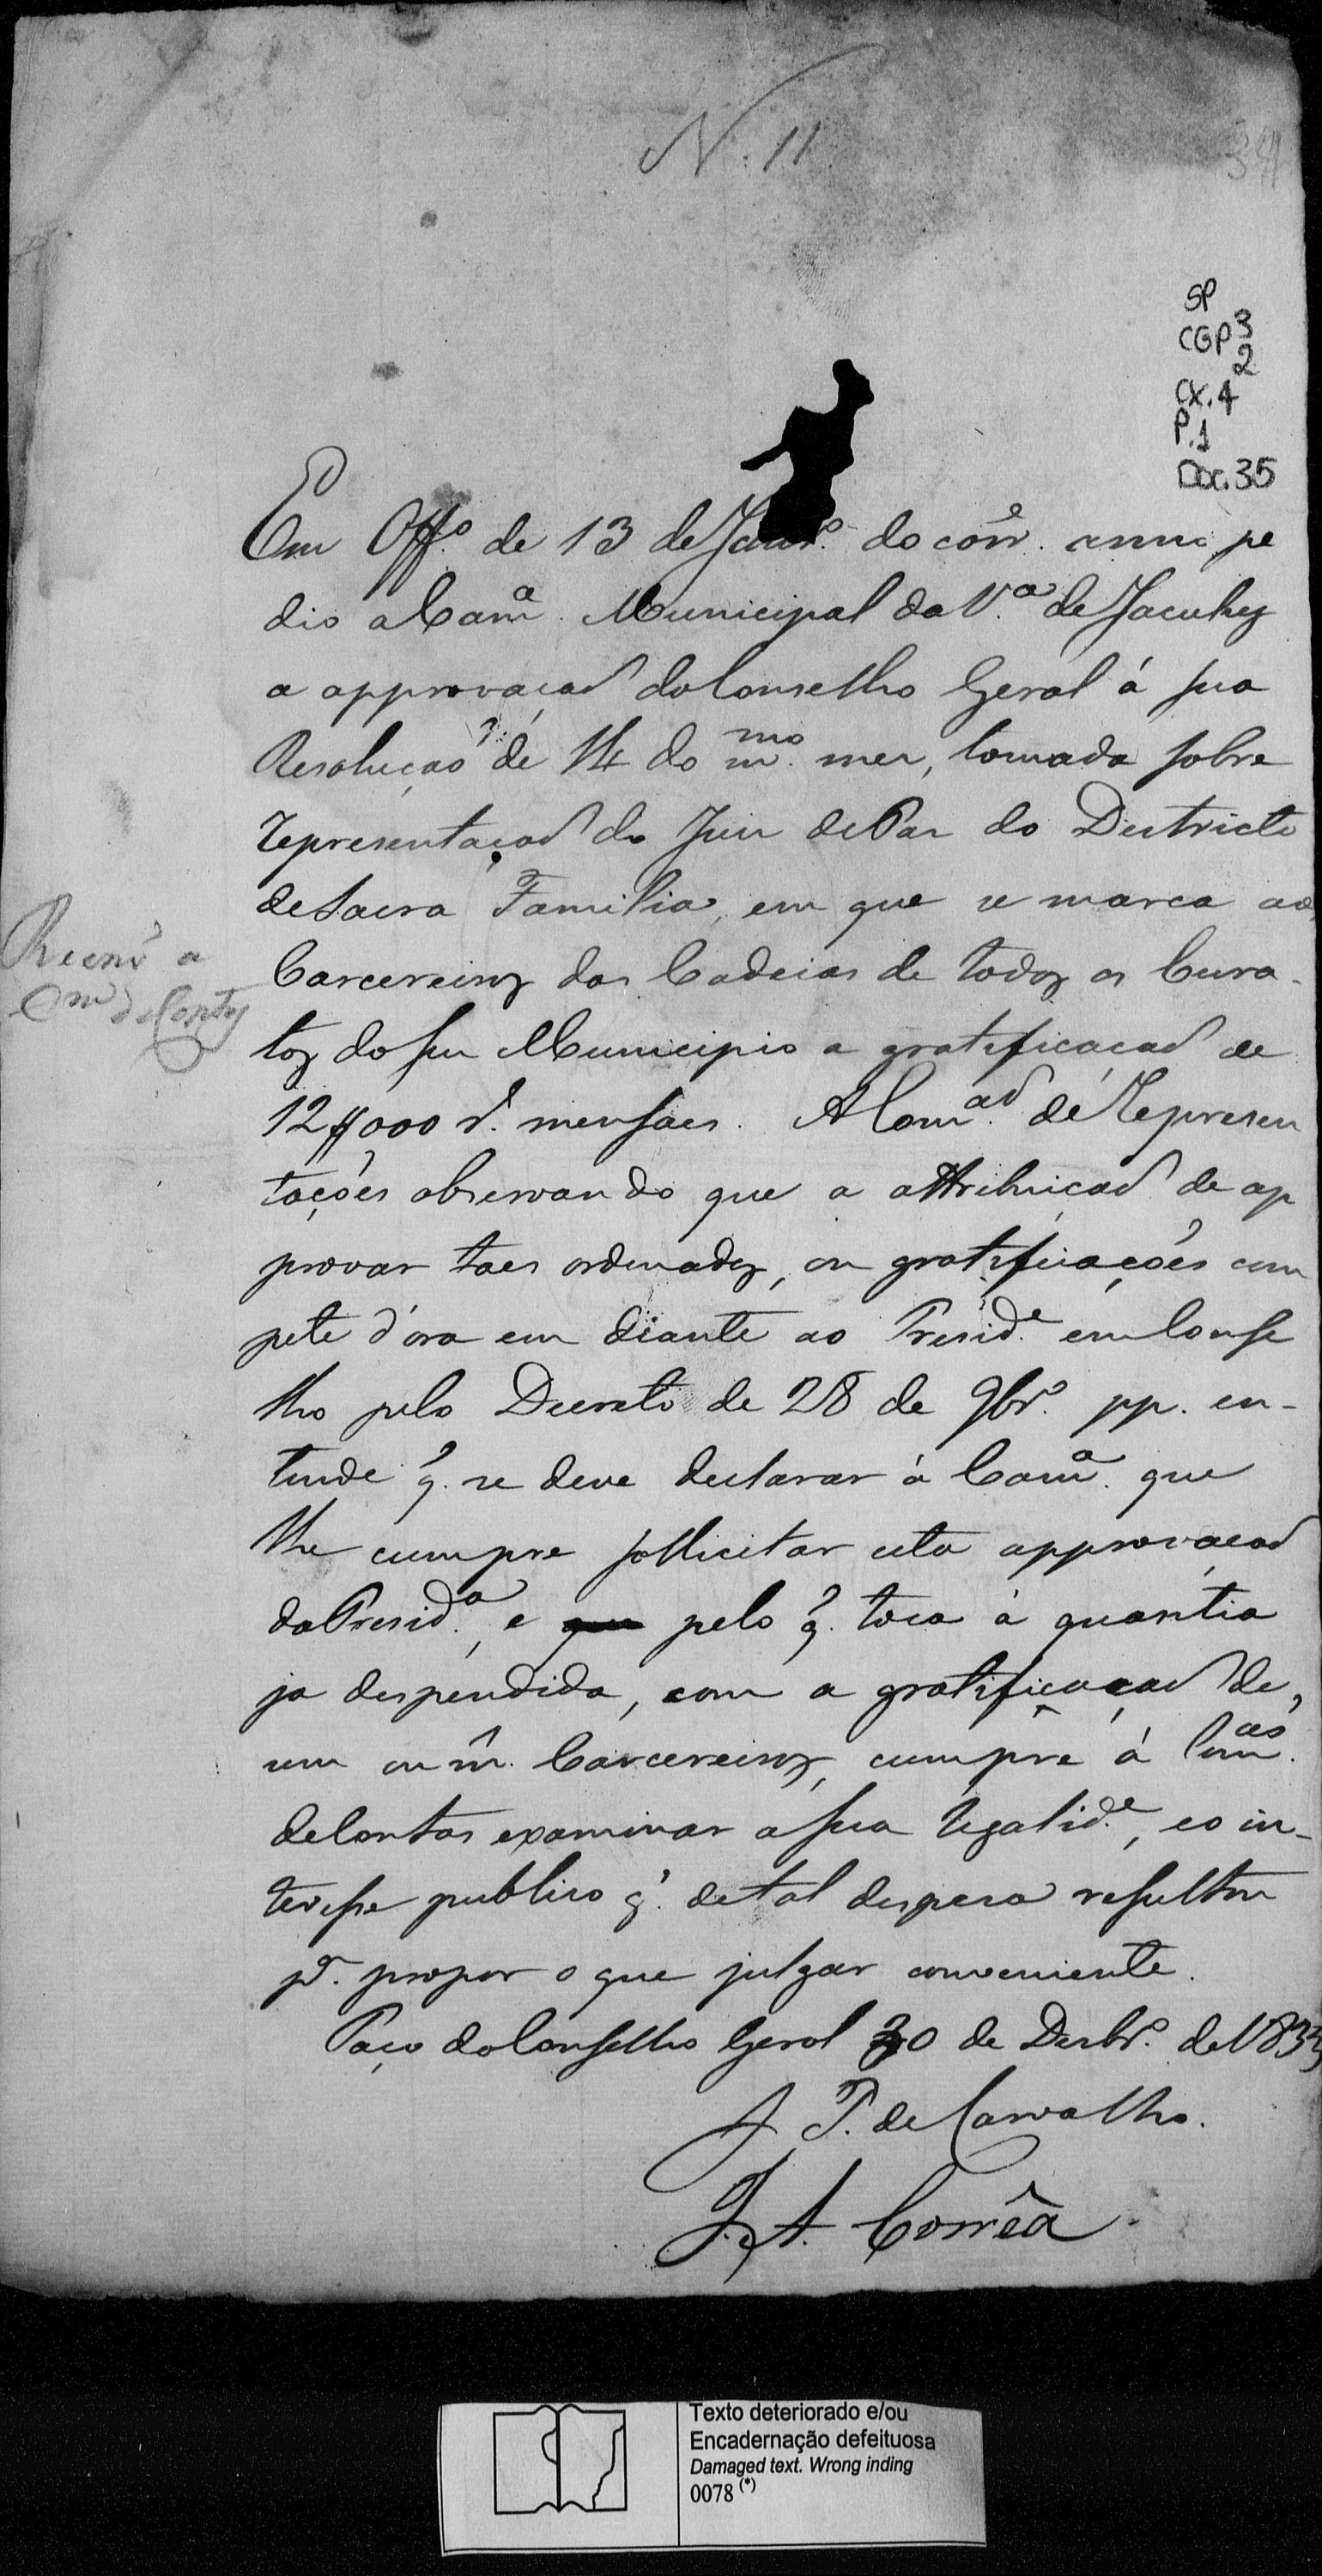 N. 11
341
SP
CGP 3
2
CX.4
P.1
Doc.35
Em Off.º de 13 de Janr.º do corr.e anno pe
dio a Cam.a Municipal da V.a de Jacuhy
a approvaçaõ do Conselho Geral á sua
Resoluçaõ de 14 do m.mo mez, tomada sobre
representaçaõ do Juiz de Paz do Districto
de Sacra Familia, em que se marca aos
Carcereiros das Cadeias de todos os Cura-
tos do seu Municipio a gratificaçaõ de
12$000 r.s mensaes. A Com.aõ de Represen
tações observando que a attribuiçaõ de ap
provar taes ordenados, ou gratificações com
pete d'ora em diante ao Presid.e em Conse
lho pelo Decreto de 28 de 9br.º pp. en-
tende q. se deve declarar á Cam.a que
lhe cumpre sollicitar esta approvaçaõ
da Presid.a, e que pelo q. toca á quantia
ja despendida, com a gratificaçaõ de
um ou m. Carcereiros, cumpre á Com.aõ
de Contas examinar a sua legalid.e, e o in-
teresse publico q. de tal despesa resultou
p.a propor o que julgar conveniente.
Paço do Conselho Geral 30 de Dezbr.º de 1833
J. P. de Carvalho.
J. A. Corrêa
a
Com de Contas
Texto deteriorado e/ou
Encadernação defeituosa
Damaged text. Wrong inding
0078 (*)